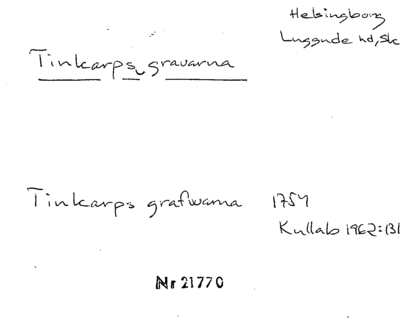 Helsingborg
Luggude hd, Sk
Tinkarps gravarna
Tinkarps grafwarna 1754
Kullab 1962:131
Nr 21770